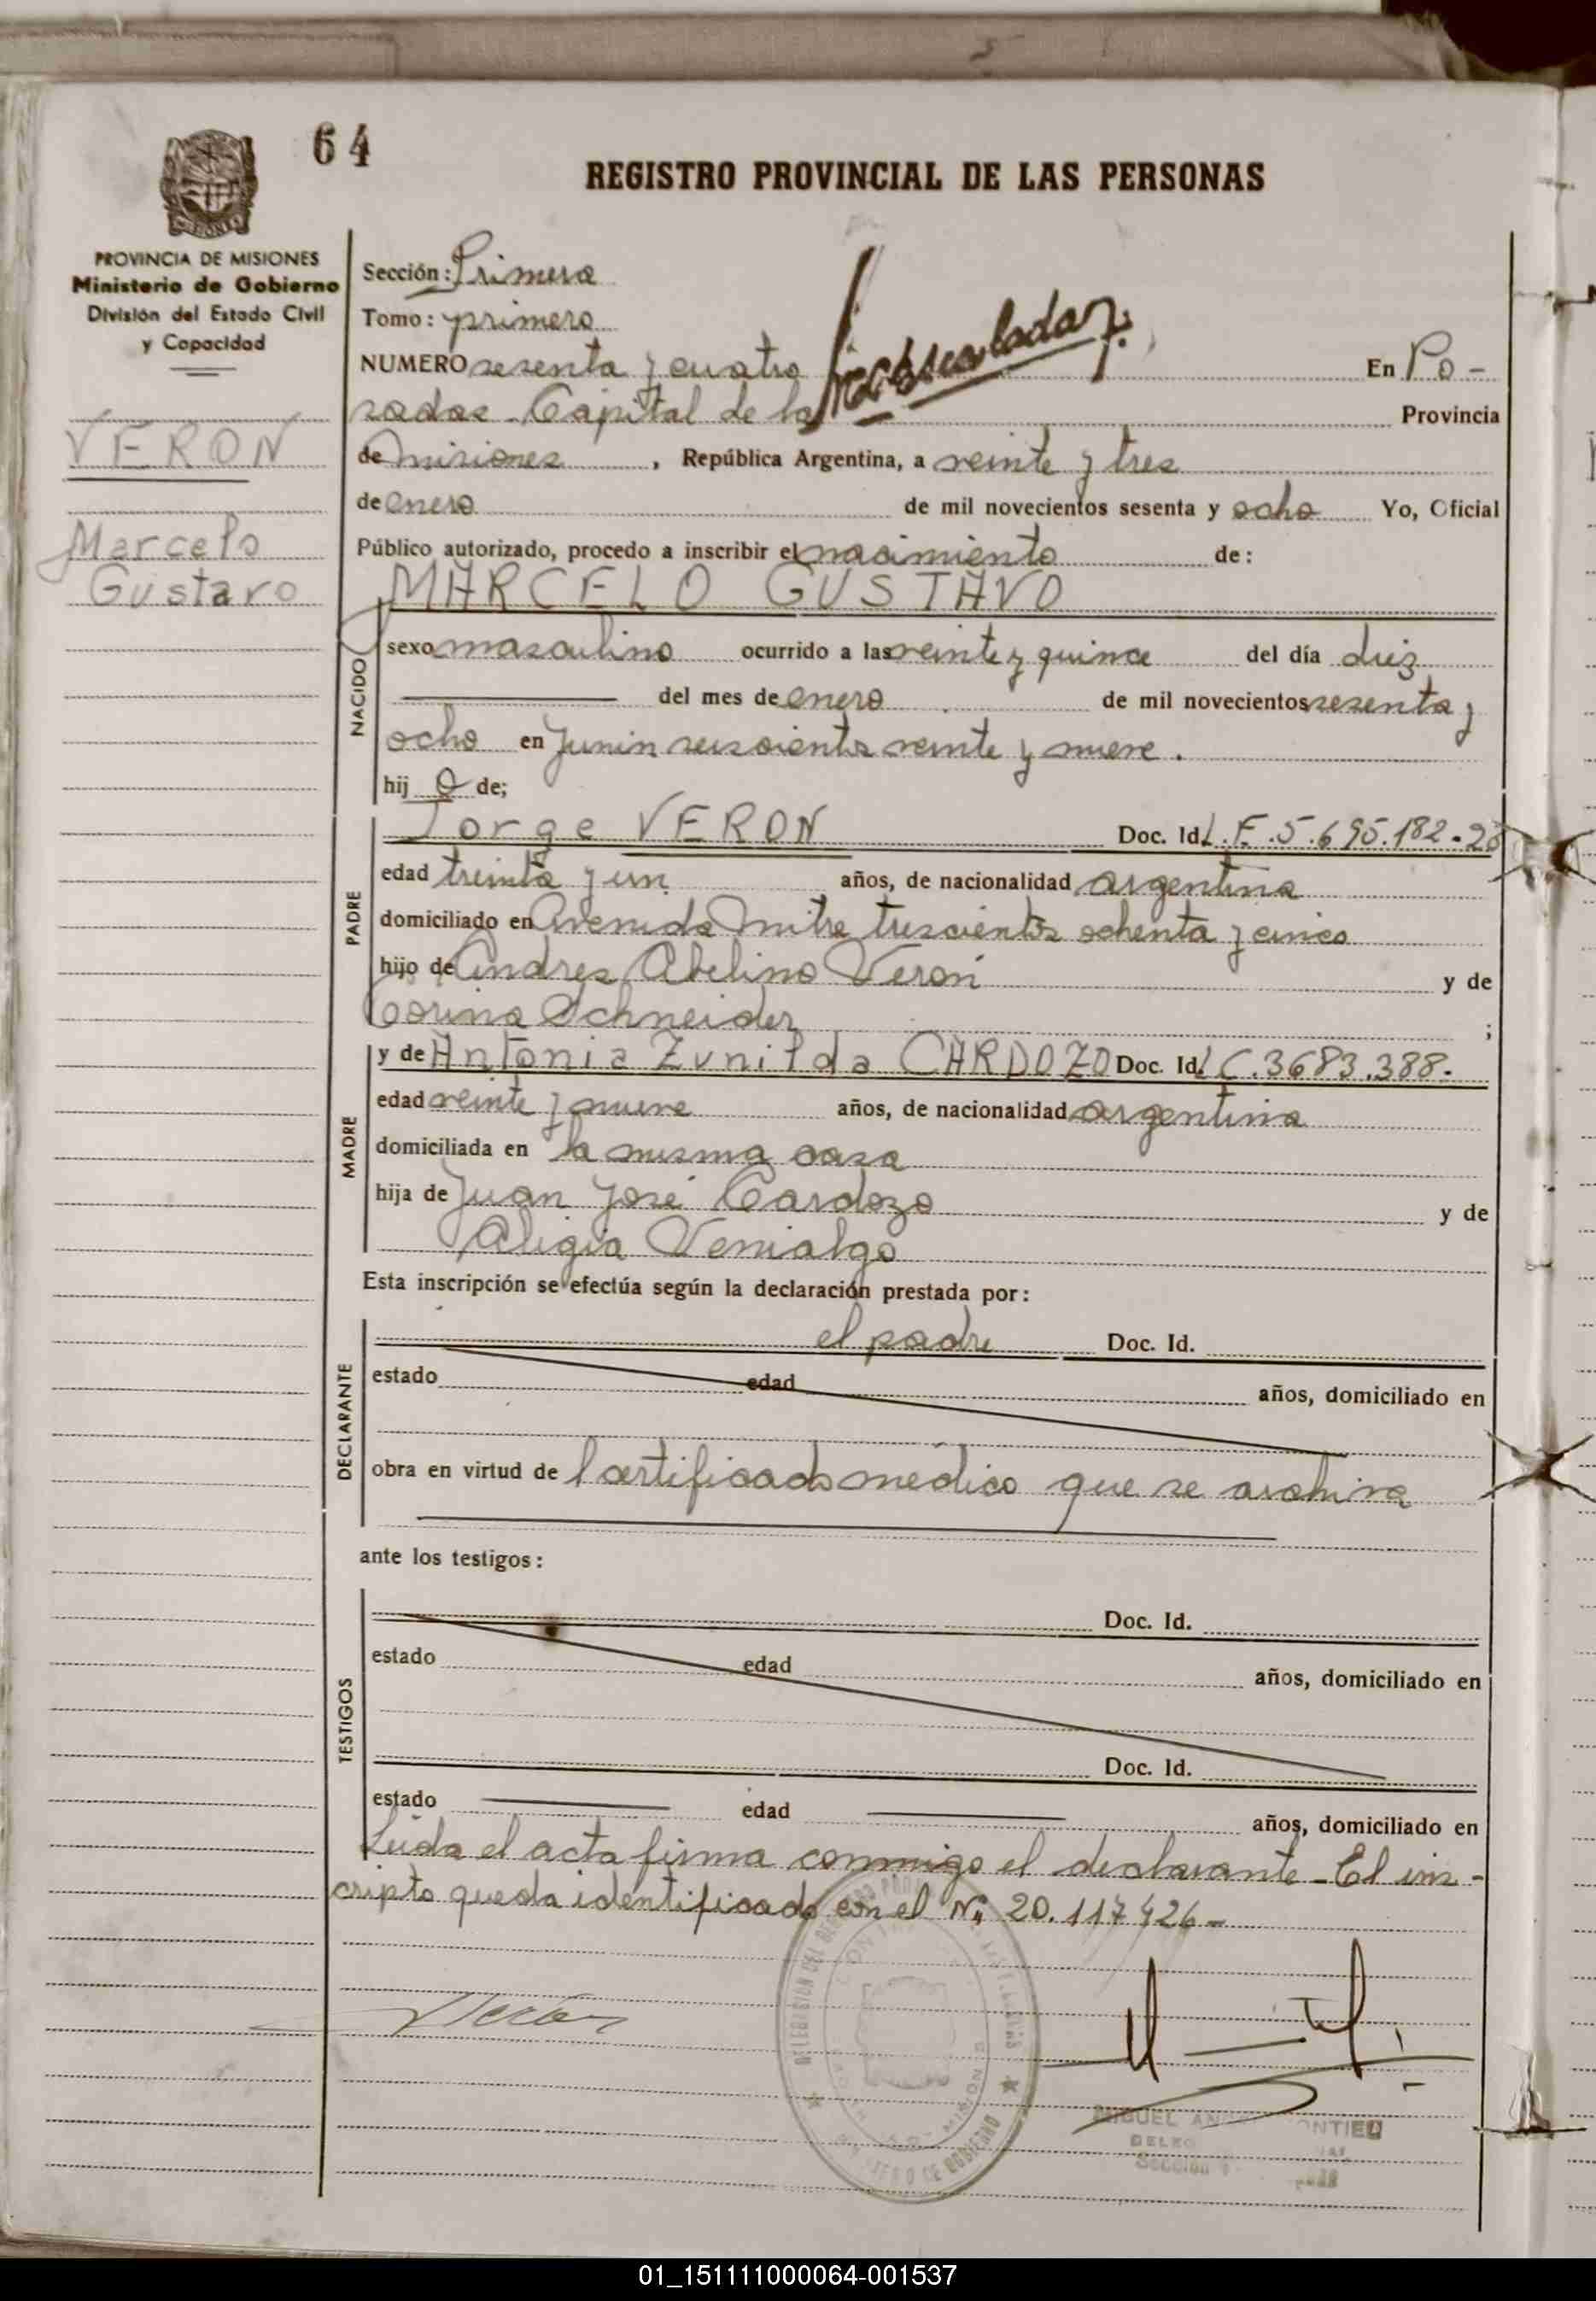 64
REGISTRO PROVINCIAL DE LAS PERSONAS
MISIONES
PROVINCIA DE MISIONES
Ministerio de Gobierno
División del Estado Civil
y Capacidad
VERON
Marcelo
Gustavo
Sección: Primera
Tomo: primero
NUMERO sesenta y cuatro En Po-
sadas - Capital de la Provincia
de Misiones, República Argentina, a veinte y tres
de enero de mil novecientos sesenta y ocho Yo, Oficial
Público autorizado, procedo a inscribir el nacimiento de:
MARCELO GUSTAVO
NACIDO
sexo masculino ocurrido a las veinte y quince del día diez
del mes de enero de mil novecientos sesenta y
ocho en Junin seiscientos veinte y nueve.
hij o de;
PADRE
Jorge VERON Doc. Id. L.E. 5.695.182-
edad treinta y un años, de nacionalidad argentina
domiciliado en Avenida Mitre trescientos ochenta y cinco
hijo de Andres Abelino Veron y de
Corina Schneider ;
MADRE
y de Antonia Zunilda CARDOZO Doc. Id. L.C. 3683.388-
edad veinte y nueve años, de nacionalidad argentina
domiciliada en la misma casa
hija de Juan José Cardozo y de
Aligia Venialgo
Esta inscripción se efectúa según la declaración prestada por:
DECLARANTE
el padre Doc. Id.
estado edad años, domiciliado en
obra en virtud del certificado médico que se archiva
ante los testigos:
TESTIGOS
Doc. Id.
estado edad años, domiciliado en
Doc. Id.
estado edad años, domiciliado en
Leida el acta firma conmigo el declarante - El ins-
cripto queda identificado con el Nº 20.117.426-
Veron
MIGUEL
01_151111000064-001537